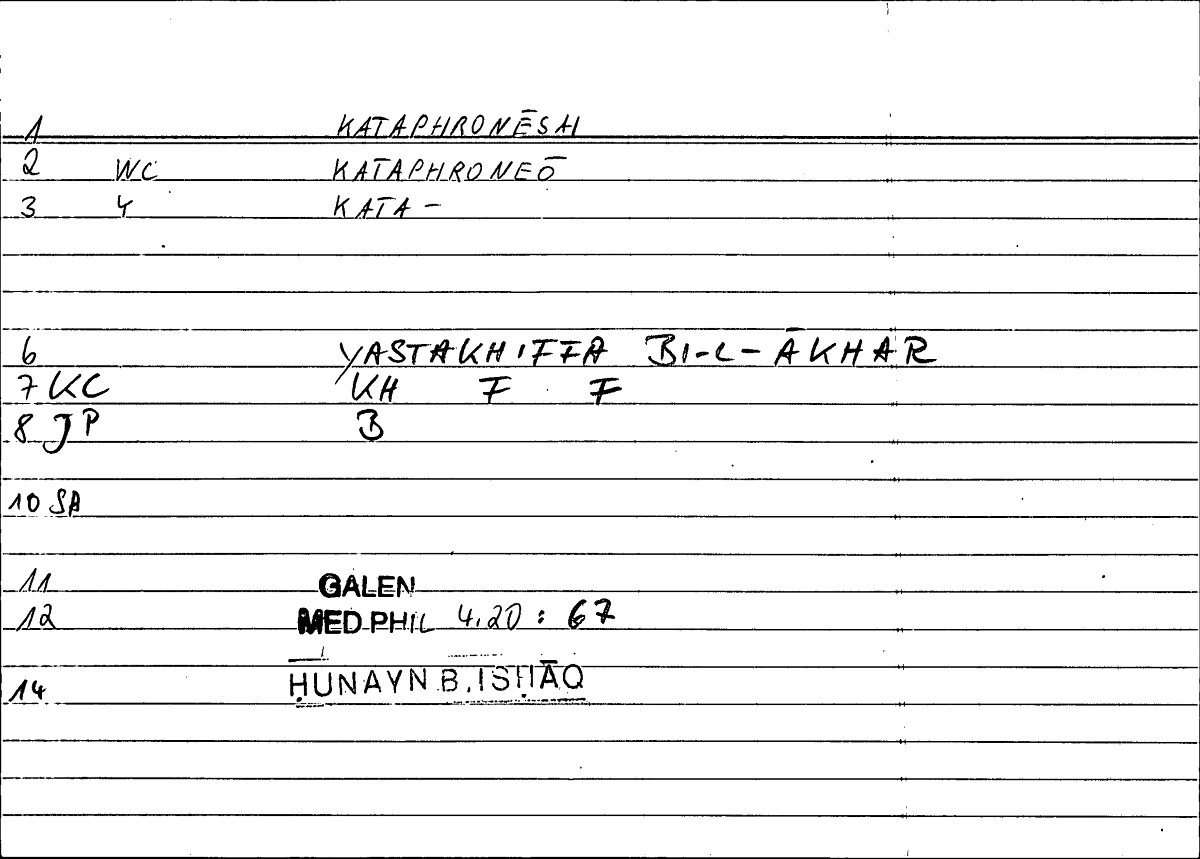 1 KATAPHRONĒSĒI
2 WC KATAPHRONEŌ
3 4 KATA-
6 YASTAKHIFFA BI-L-ĀKHAR
7 KC KH F F
8 JP B
10 SA
11 GALEN
12 MED.PHIL 4.20 : 67
14 ḤUNAYN B. ISḤĀQ